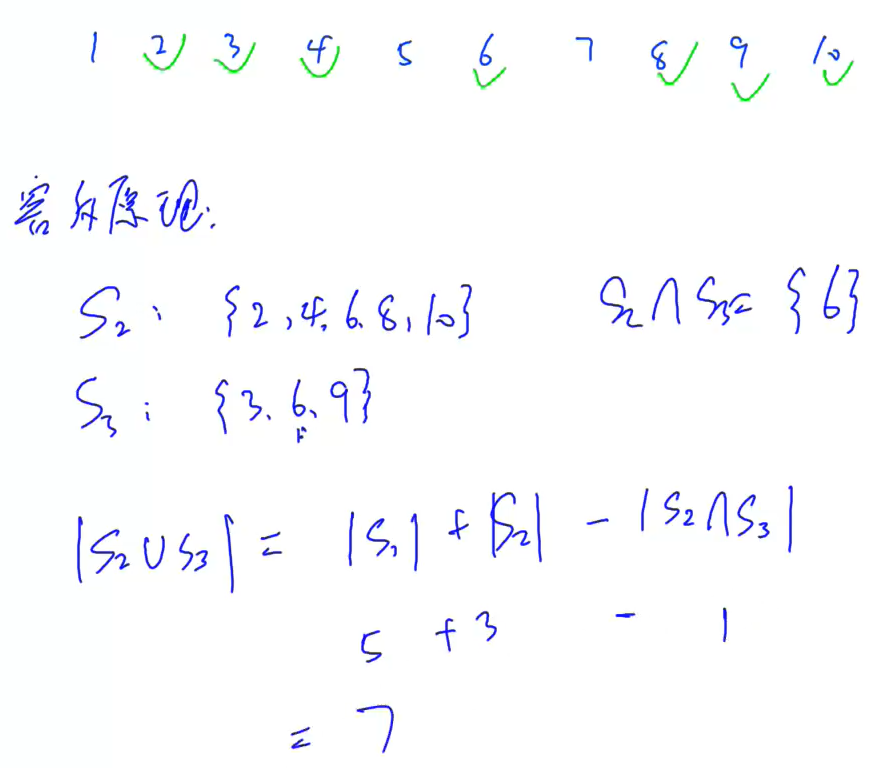 1 2 3 4 5 6 7 8 9 10
容斥原理:
S₂: {2,4,6,8,10} S₂∩S₃= {6}
S₃: {3,6,9}
|S₂∪S₃| = |S₁| + |S₂| - |S₂∩S₃|
5 + 3 - 1
= 7